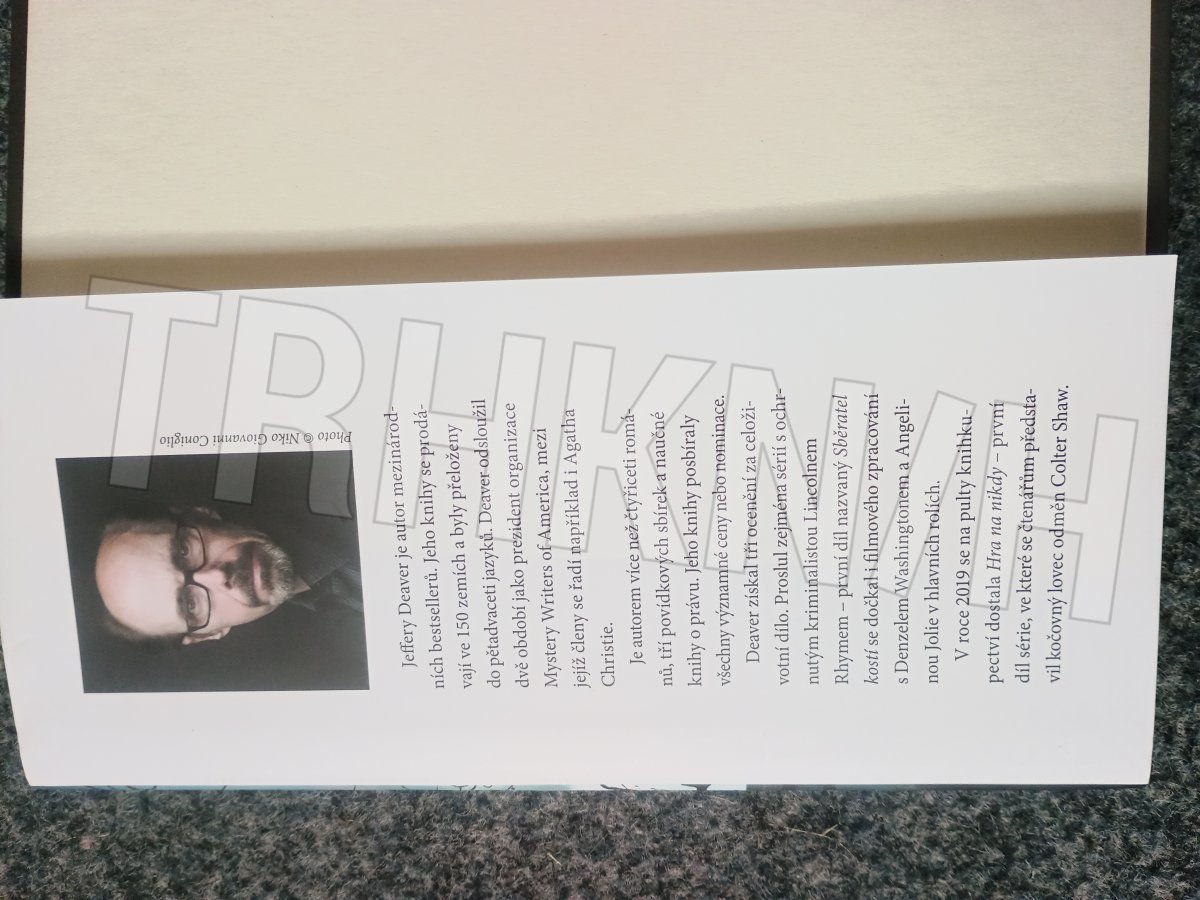 Photo © Niko Giovanni Coniglio
Jeffery Deaver je autor mezinárod-
ních bestsellerů. Jeho knihy se prodá-
vají ve 150 zemích a byly přeloženy
do pětadvaceti jazyků. Deaver odsloužil
dvě období jako prezident organizace
Mystery Writers of America, mezi
jejíž členy se řadí například i Agatha
Christie.
Je autorem více než čtyřiceti romá-
nů, tří povídkových sbírek a naučné
knihy o právu. Jeho knihy posbíraly
všechny významné ceny nebo nominace.
Deaver získal tři ocenění za celoži-
votní dílo. Proslul zejména sérií s ochr-
nutým kriminalistou Lincolnem
Rhymem – první díl nazvaný Sběratel
kostí se dočkal i filmového zpracování
s Denzelem Washingtonem a Angeli-
nou Jolie v hlavních rolích.
V roce 2019 se na pulty knihku-
pectví dostala Hra na nikdy – první
díl série, ve které se čtenářům předsta-
vil kočovný lovec odměn Colter Shaw.
TRHKNIH